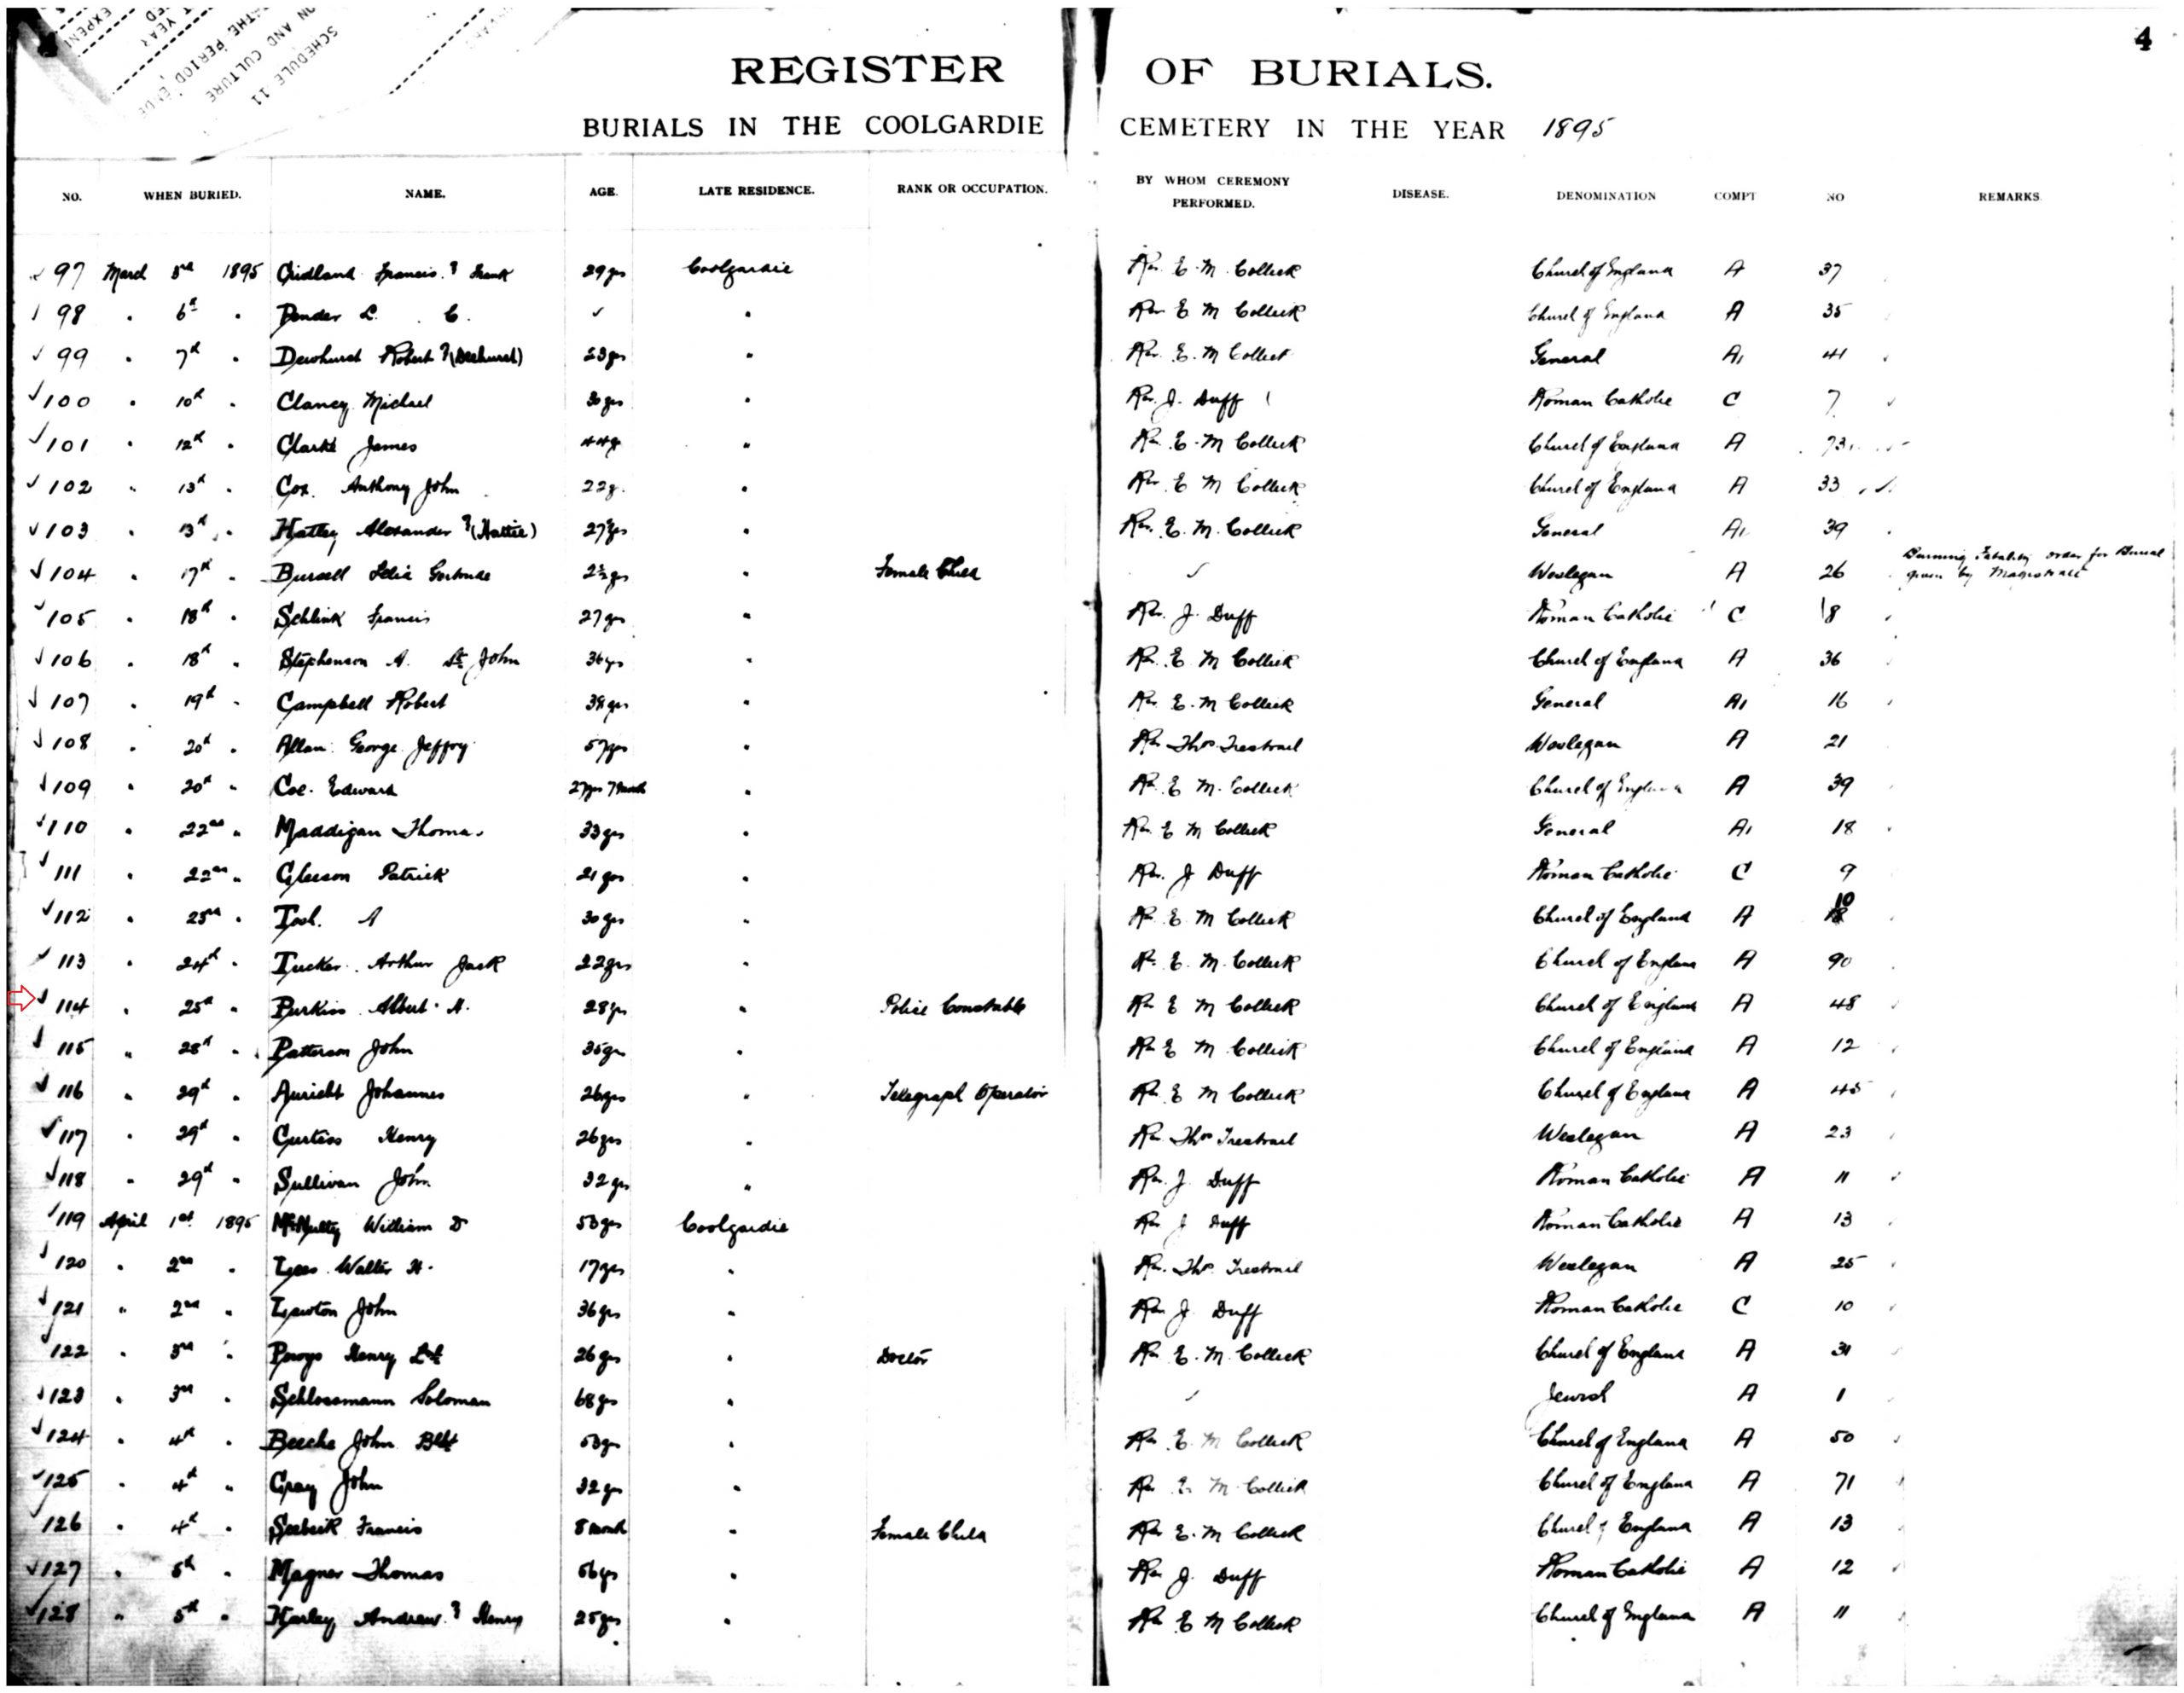 EXPEN
YEAR
ED
THE PERIOD
ON AND CULTURE
SCHEDULE 11
4
REGISTER OF BURIALS.
BURIALS IN THE COOLGARDIE CEMETERY IN THE YEAR 1895
NO. WHEN BURIED. NAME. AGE. LATE RESIDENCE. RANK OR OCCUPATION. BY WHOM CEREMONY PERFORMED. DISEASE. DENOMINATION COMPT NO REMARKS
97 March 3rd 1895 Gridland Francis ? Frank 29 yrs Coolgardie Rev. E. M. Collick Church of England A 37
98 " 6th " Ponder L. C. ✓ " Rev E M Collick Church of England A 35
99 " 7th " Dewhurst Robert ? (Deehurst) 23 yrs " Rev. E. M Collick General A1 41
100 " 10th " Clancy Michael 30 yrs " Rev. J. Duff Roman Catholic C 7
101 " 12th " Clarke James 44 y " Rev. E. M Collick Church of England A 73
102 " 13th " Cox. Anthony John 22 y. " Rev. E M Collick Church of England A 33
103 " 13th " Hatley Alexander ? (Hattie) 27 yrs " Rev. E. M. Collick General A1 39
104 " 17th " Bursell Gertrude 2½ yrs " Female Child ✓ Wesleyan A 26 Burning Fatality order for Burial given by Magistrate
105 " 18th " Schlink Francis 27 yrs " Rev. J. Duff Roman Catholic C 8
106 " 18th " Stephenson A. St John 36 yrs " Rev. E M Collick Church of England A 36
107 " 19th " Campbell Robert " Rev. E. M Collick General A1 16
108 " 20th " Allan George Jeffry 57 yrs " Rev Thos. Trestrail Wesleyan A 21
109 " 20th " Coe. Edward 27 yrs 7 month " Rev. E M. Collick Church of England A 39
110 " 22nd " Maddigan Thomas 33 yrs " Rev. E M Collick General A1 18
111 " 22nd " Gleeson Patrick 21 yrs " Rev. J Duff Roman Catholic C 9
112 " 23rd " A 30 yrs " Rev E M Collick Church of England A 10
113 " 24th " Tucker. Arthur Jack 22 yrs " Rev. E. M. Collick Church of England A 90
114 " 25th " Purkiss Albert. H. 28 yrs " Police Constable Rev E M Collick Church of England A 48
115 " 28th " Patterson John 35 yrs " Rev E M Collick Church of England A 12
116 " 29th " Auricht Johannes 26 yrs " Telegraph Operator Rev. E M Collick Church of England A 45
117 " 29th " Curtiss Henry 26 yrs " Rev. Thos Trestrail Wesleyan A 23
118 " 29th " Sullivan John 32 yrs " Rev. J Duff Roman Catholic A 11
119 April 1st 1895 McNulty William D 50 yrs Coolgardie Rev J Duff Roman Catholic A 13
120 " 2nd " Lees Walter H. 17 yrs " Rev. Thos. Trestrail Wesleyan A 25
121 " 2nd " Lawton John 36 yrs " Rev J Duff Roman Catholic C 10
122 " 3rd " Powys Henry 26 yrs " Doctor Rev E. M. Collick Church of England A 31
123 " 3rd " Schlossmann Soloman 68 yrs " ✓ Jewish A 1
124 " 4th " Beeche John " Rev E. M Collick Church of England A 50
125 " 4th " Gray John 32 yrs " Rev E. M. Collick Church of England A 71
126 " 4th " Seebeik Francis 8 month " Female Child Rev E. M Collick Church of England A 13
127 " 5th " Magner Thomas 56 yrs " Rev J. Duff Roman Catholic A 12
128 " 5th " Harley Andrew ? Henry 25 yrs " Rev E M Collick Church of England A 11